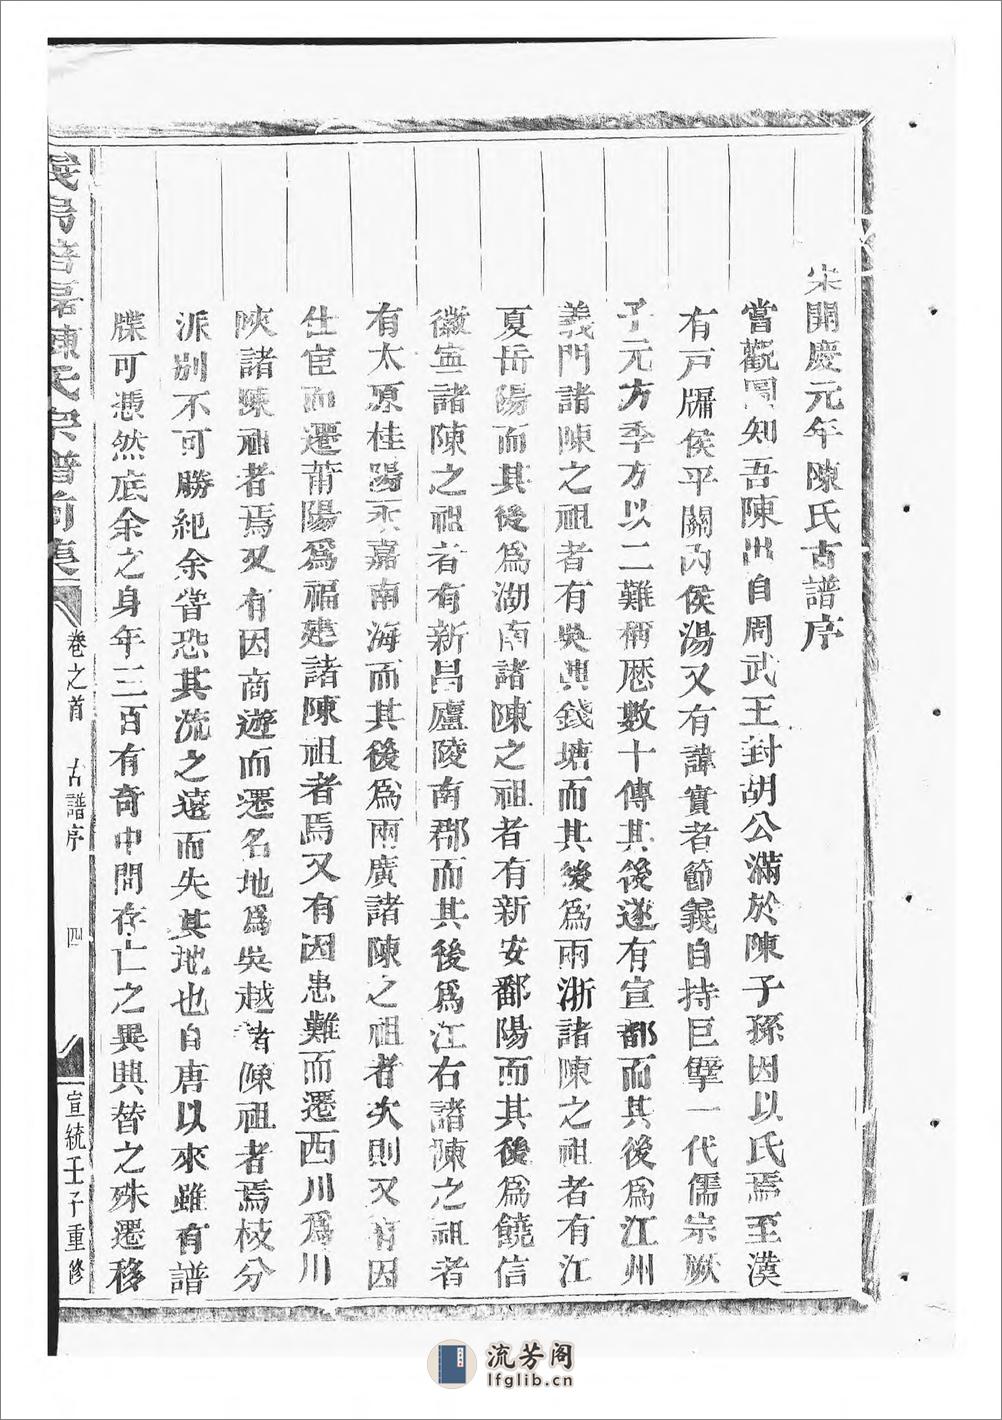 宋開慶元年陳氏古譜序
嘗觀圖知吾陳出自周武王封胡公滿於陳子孫因以氏焉至漢
有戸牖侯平關內侯湯又有諱實者節義自持巨擘一代儒宗厥
子元方季方以二難稱歴數十傳其後遂有宣都而其後爲江州
義門諸陳之祖者有吳興錢塘而其後爲兩浙諸陳之祖者有江
夏岳陽而其後爲湖南諸陳之祖者有新安鄱陽而其後爲饒信
徽寧諸陳之祖者有新昌廬陵南郡而其後爲江右諸陳之祖者
有太原桂陽永嘉南海而其後爲兩廣諸陳之祖者次則又有因
仕宦而遷莆陽爲福建諸陳祖者焉又有因患難而遷西川爲川
陝諸陳祖者焉又有因商遊而遷名地爲吳越諸陳祖者焉枝分
派别不可勝紀余嘗恐其流之遠而失其地也自唐以來雖有譜
牒可憑然底余之身年三百有奇中間存亡之異興替之殊遷移
陳氏宗譜前集
卷之首 古譜序 四
宣統壬子重修
流芳阁
lfglib.cn